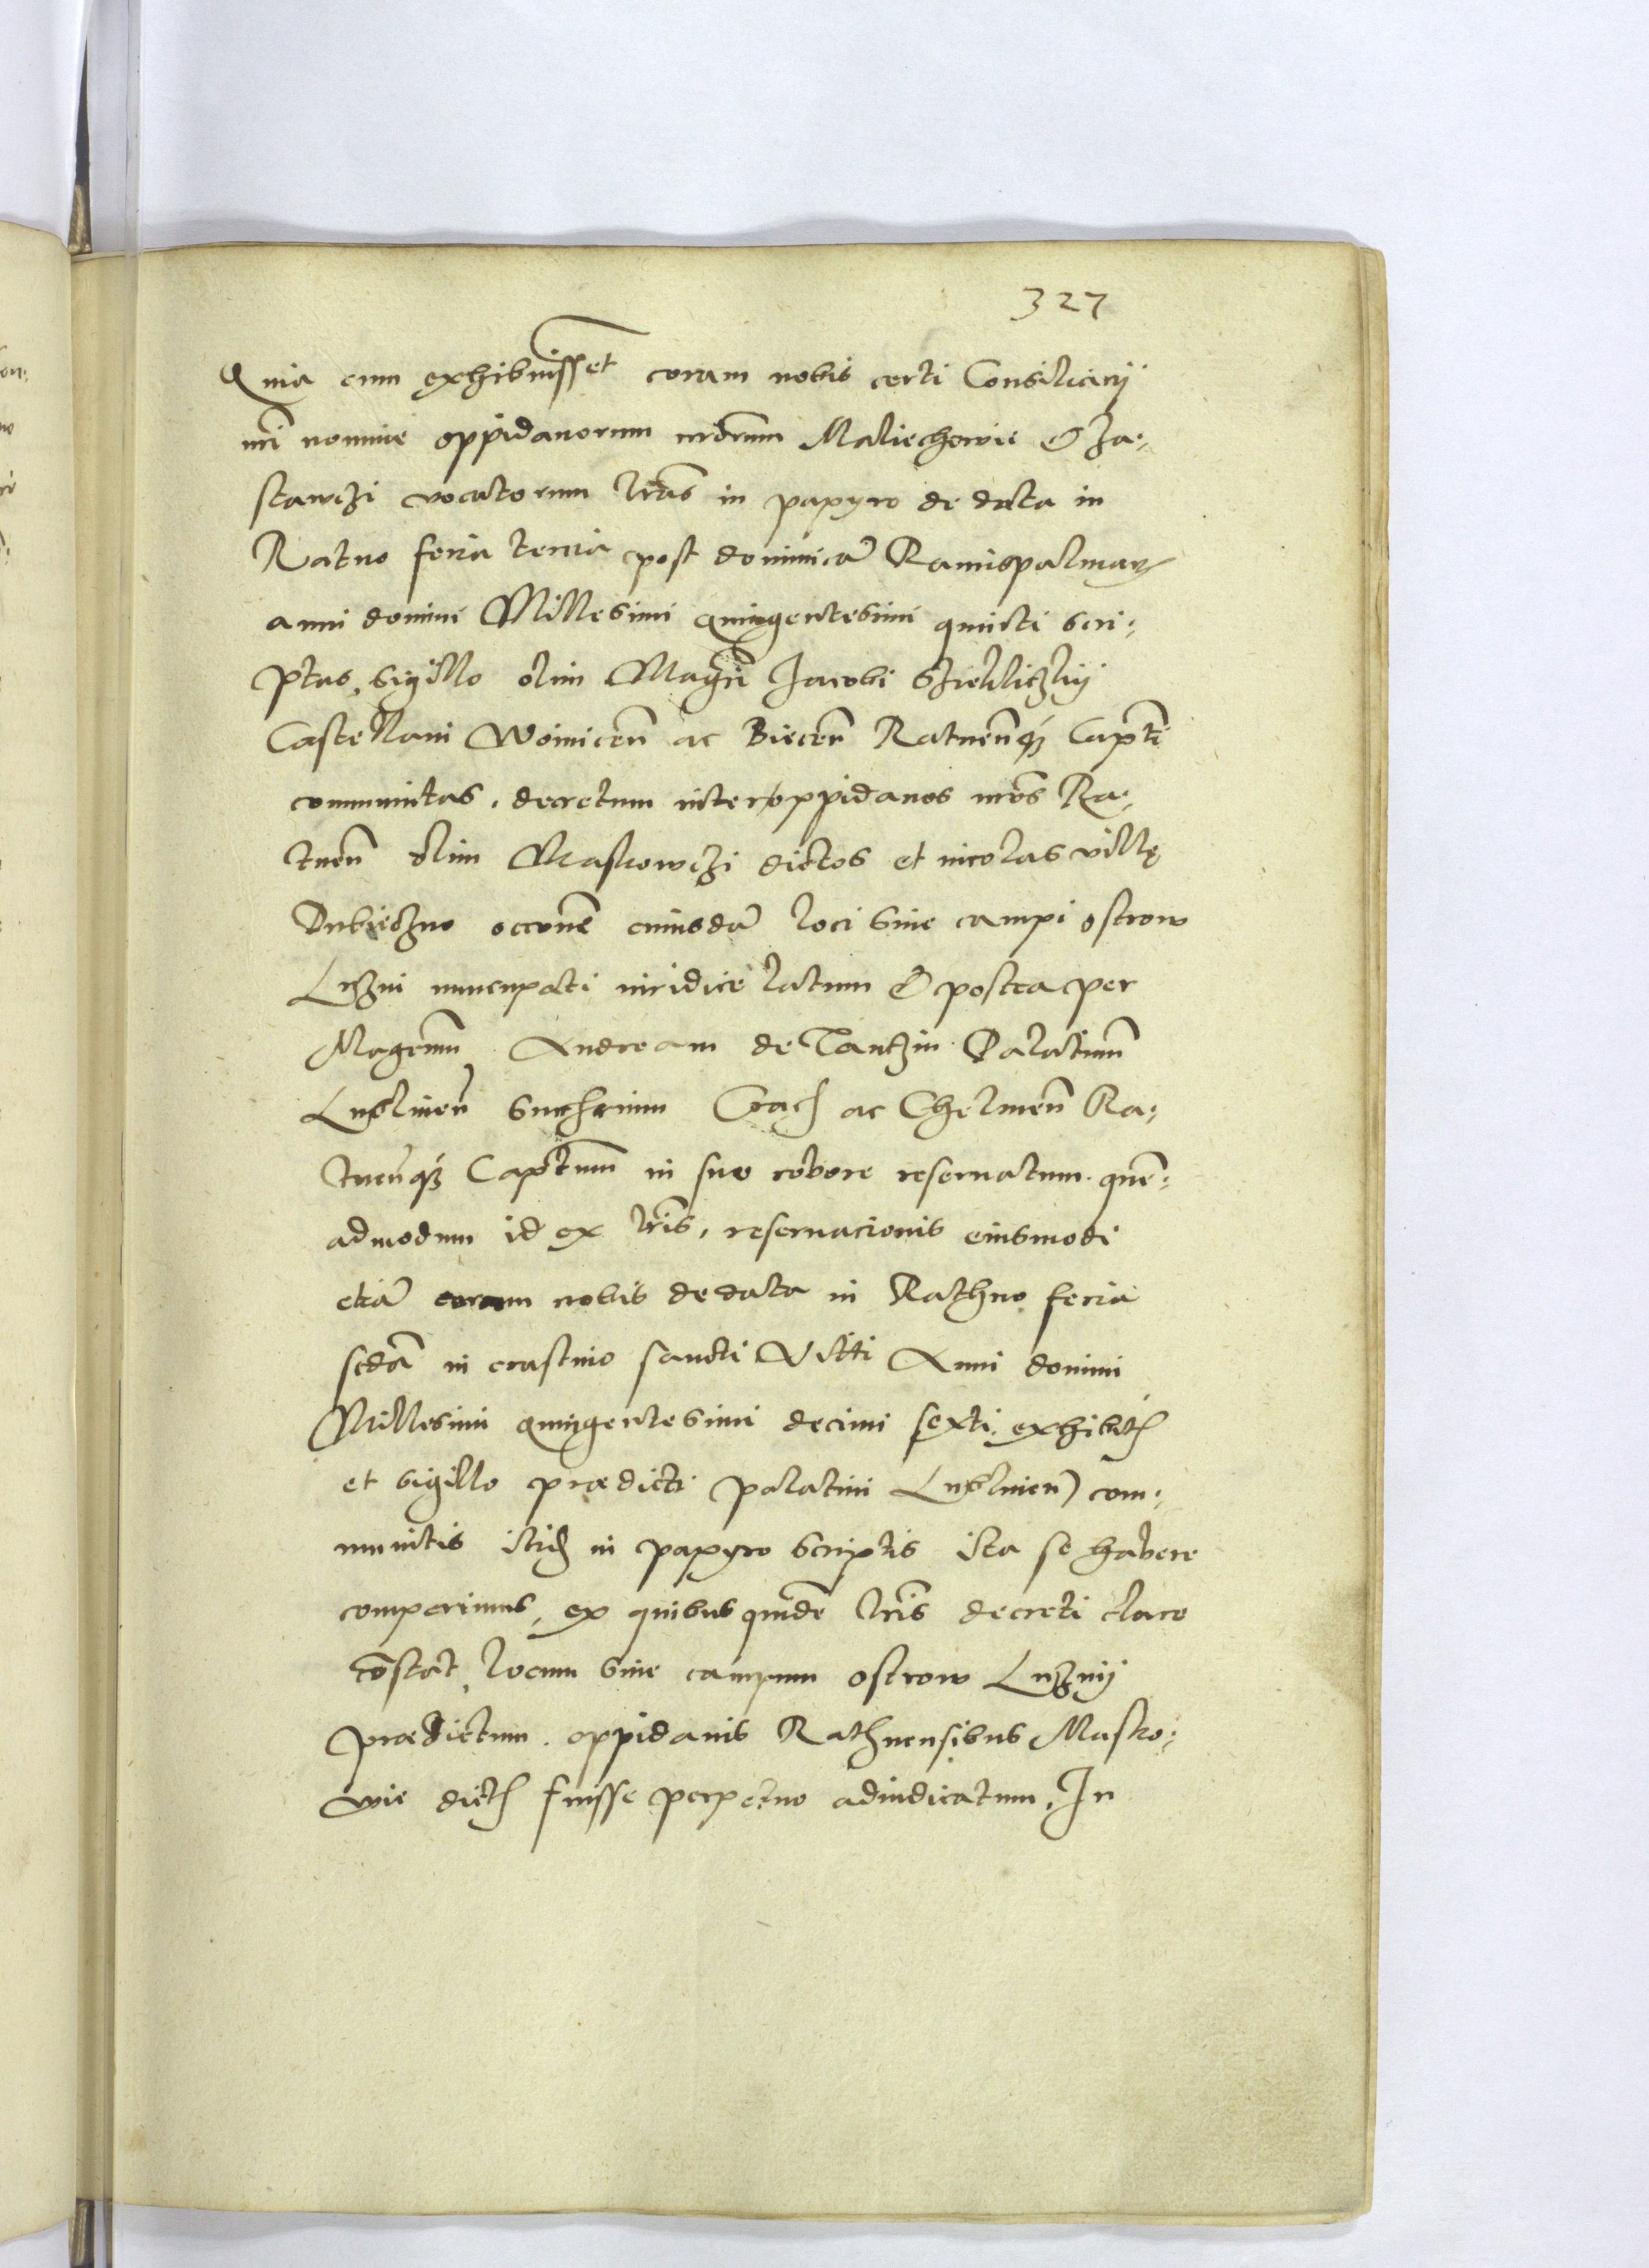 327
Quia cum exhibuissēt coram nobis certi Consiliarij
nrī nomine oppidanorum nrōrum Maliechowie & Za:
stawczi vocatorum lrās in papyro de data in
Ratno feria tercia post dominicā Ramispalmarū
anni domini Millesimi quingentesimi quinti scri:
ptas, sigillo olim Magcī Jacobi
Castellani Woinicēn ac Biecēn Ratnēnqȝ Captī
communitas, decretum inter oppidanos nrōs Ra:
tnēn olim Maskowczi dictos et incolas villę
Dubieczno occōne cuiusdā loci siue campi ostrow
Luzni nuncupati iuridice latum & postea per
Magcum Andream de Tantzin Palatinum
Lublineñ Succam̄ Crac̄ ac Chelmēn Ra:
tneñqȝ Captum in suo robore reseruatum. quē:
admodum id ex lrīs, reseruacionis eiusmodi
etiā coram nobis de data in Rathno feria
scdā in crastino sancti Viti Anni domini
Millesimi quingentesimi decimi sexti, exhibit̄
et sigillo prædicti palatini Lublineñ com:
munitis itid̄ in papyro scriptis ita se habere
comperimus, ex quibus quidē lrīs decreti clare
cōstat, locum siue campum ostrow Luznij
prædictum. oppidanis Rathnensibus Masko:
wie dict̄ fuisse perpetuo adiudicatum, In